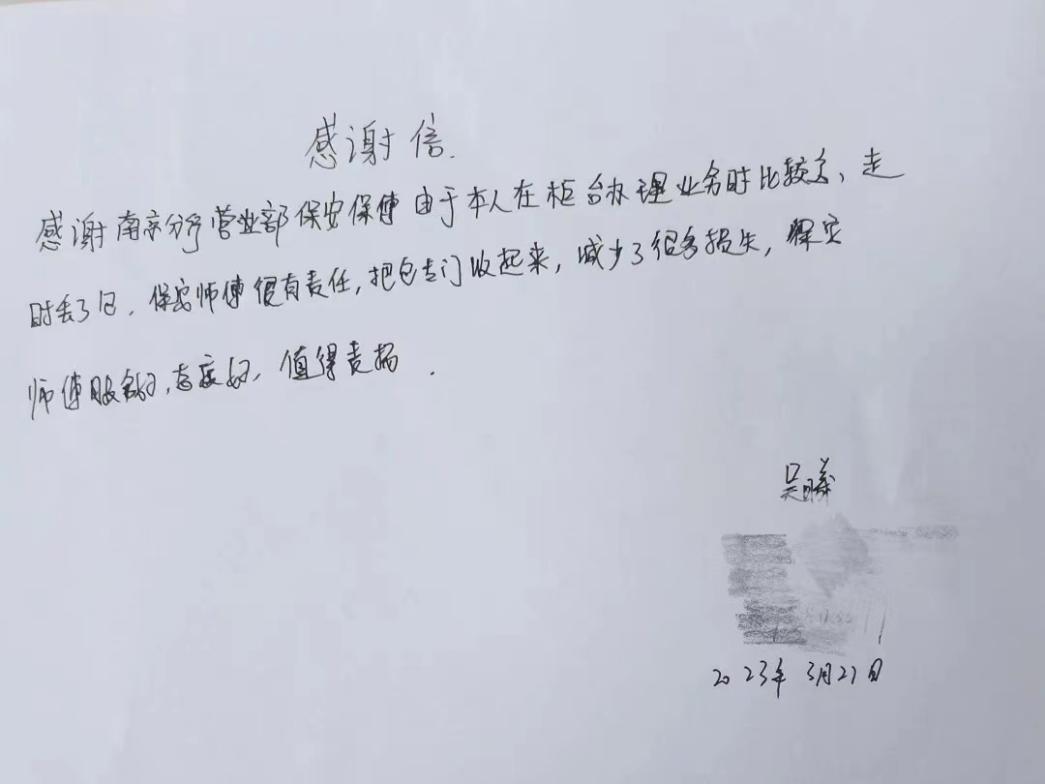 感谢信.
感谢南京分行营业部保安保傅由于本人在柜台办理业务时比较急、走
时丢了包、保安师傅很有责任,把包专门收起来,减少了很多损失,保安
师傅服务好,态度好、值得表扬.
吴曦
2023年3月27日